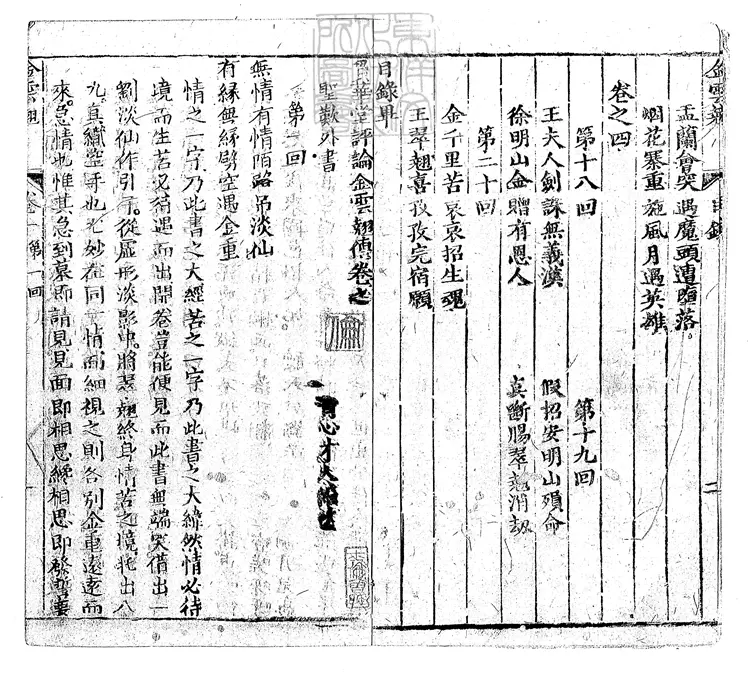 金雲翹 目錄 二
盂蘭會突遇魔頭遭墮落。
烟花寨重施風月遇英雄
卷之四
第十八回 第十九回
王夫人劍誅無義漢 假招安明山殞命
徐明山金贈有恩人 真斷腸翠翹消劫
第二十回
金千里苦哀哀招生魂
王翠翹喜孜孜完宿願
目錄畢
貫華堂評論金雲翹傳卷之
聖歎外書 青心才人編次
第一回
無情有情陌路吊淡仙
有緣無緣劈空遇金重
情之一字乃此書之大經苦之一字乃此書之大緯然情必待
境而生苦必有遇而出開卷豈能便見而此書無端突借出一
劉淡仙作引子。從虛形淡影中。將翠翹終身情苦之境托出八
九。真手也尤妙在同一情而細視之則各別金重遠遠而
來。急情也惟其急到底即請見見面即相思纔相思即發
金雲翹 卷一 第一回